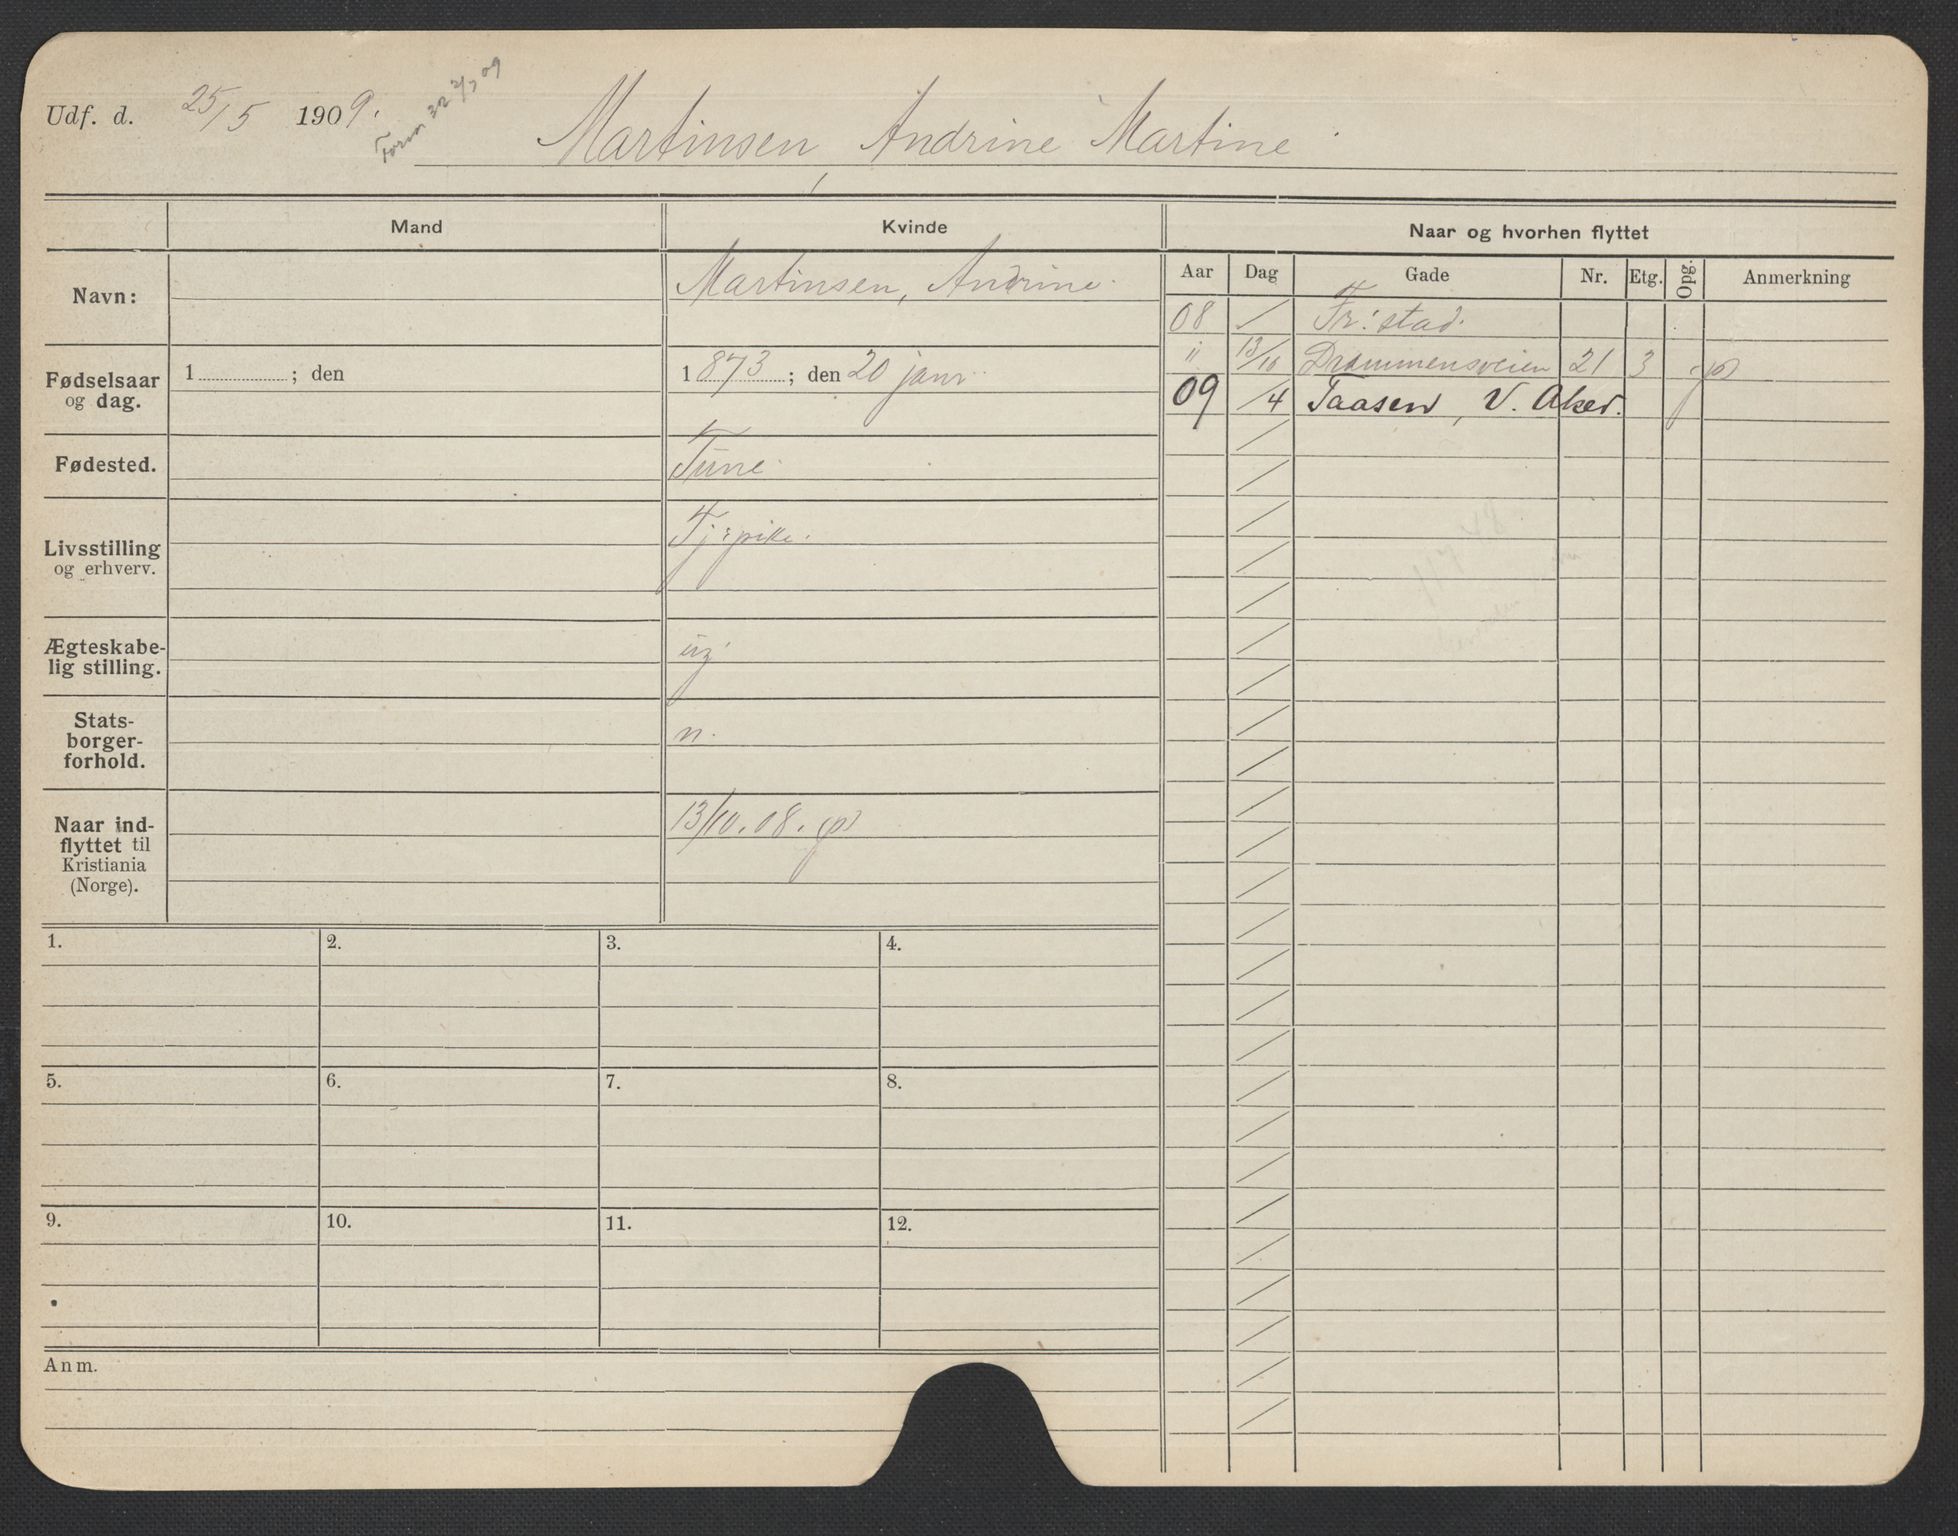 Udf. d. 25/5 1909.
Form 32 2/7 09
Martinsen Andrine Martine
Mand Kvinde Naar og hvorhen flyttet
Aar Dag Gade Nr. Etg. Opg. Anmerkning
Navn: Martinsen, Andrine.
08 / Fr:stad.
" 13/10 Drammensveien 21 3 (p)
09 /4 Taasen, V. Aker.
Fødselsaar og dag. 1 ; den 1873; den 20 janr.
Fødested. Tune.
Livsstilling og erhverv. Tj:pike.
Ægteskabe-
lig stilling. ug
Stats-
borger-
forhold. n.
Naar ind-
flyttet til
Kristiania
(Norge). 13/10.08. (p)
1. 2. 3. 4.
5. 6. 7. 8.
9. 10. 11. 12.
Anm.